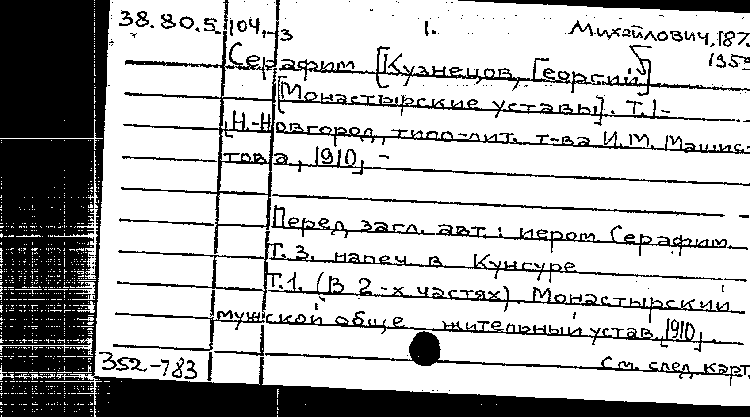 38.80.5.104.-3 1. Михайлович, 187
1959
Серафим [Кузнецов, Георгий]
[Монастырские уставы]. Т. 1-
[Н.-Новгород, типо-лит. т-ва И.М. Машис-
това, 1910] -
Перед загл. авт.: иером. Серафим
Т. 3. напеч. в Кунгуре
Т.1. (В 2-х частях). Монастырский
мужской обще жительный устав. [1910].
См. след. карт.
352-783